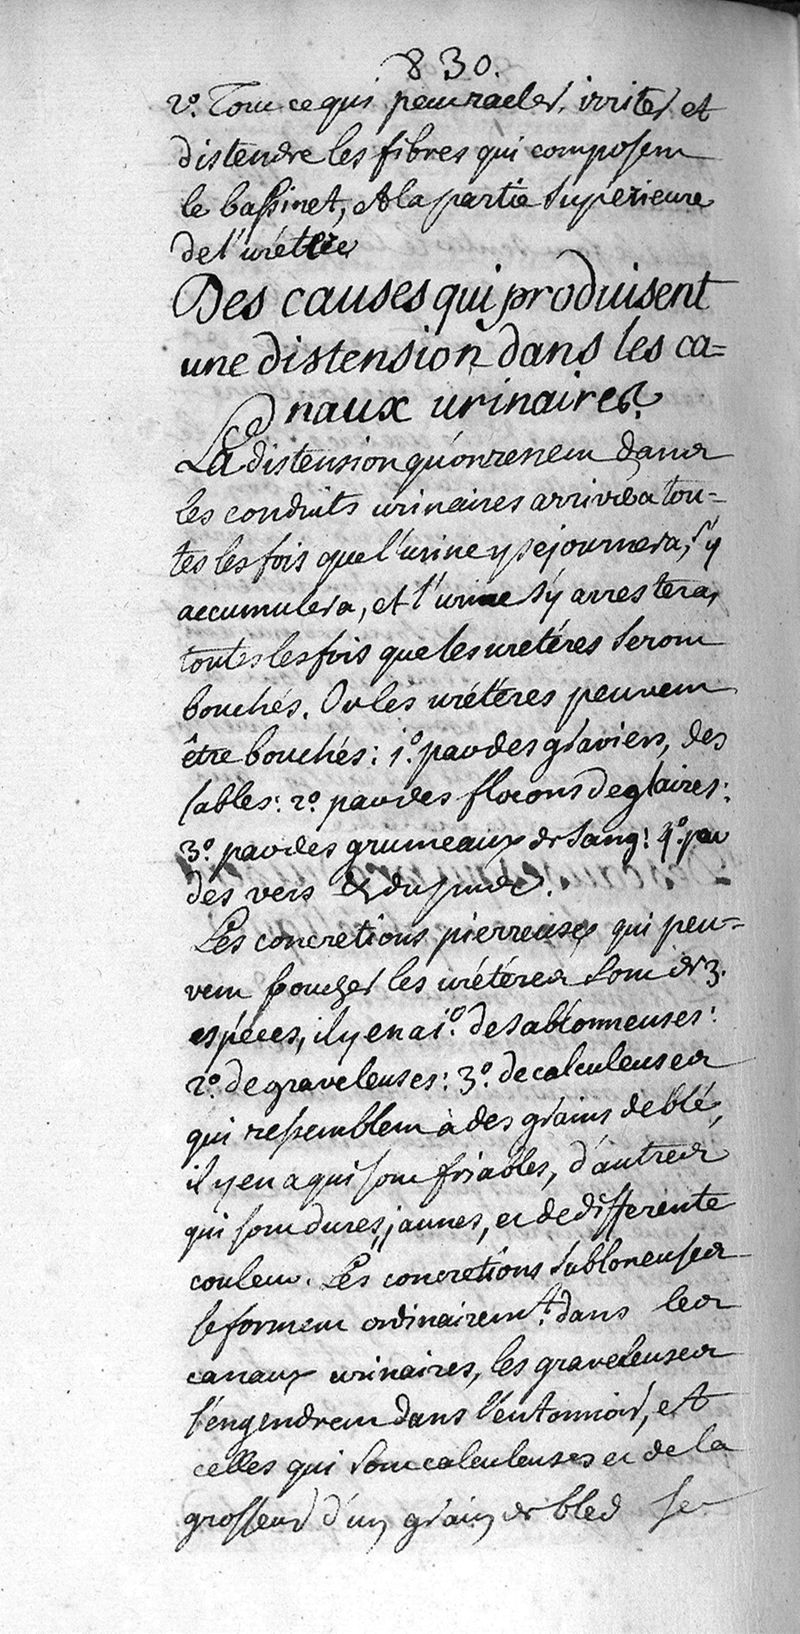 830.
2º. Tout ce qui peut racler, irriter et
distendre les fibres qui composent
le bassinet, et la partie supérieure
de l'urétère
Des causes qui produisent
une distension dans les ca=
naux urinaires.
La distension qu'on ressent dans
les conduits urinaires arrivera tou-
tes les fois que l'urine y sejournera, s'y
accumulera, et l'urine s'y arrestera,
toutes les fois que les uretéres seront
bouchés. Or les urétéres peuvent
être bouchés: 1º. par des graviers, des
sables: 2º. par des flocons de glaires:
3º. par des grumeaux de sang: 4º. par
des vers & du pus.
Les concretions pierreuses qui peu-
vent boucher les urétéres sont de 3.
espéces, il y en a 1º. de sablonneuses:
2º. de graveleuses: 3º. de calculeuses
qui ressemblent à des grains de blé,
il y en a qui sont friables, d'autres
qui sont dures, jaunes, et de differente
couleur. Les concretions sabloneuses
se forment ordinairemt. dans les
canaux urinaires, les graveleuses
s'engendrent dans l'entonnoir, et
celles qui sont calculeuses et de la
grosseur d'un grain de bled se